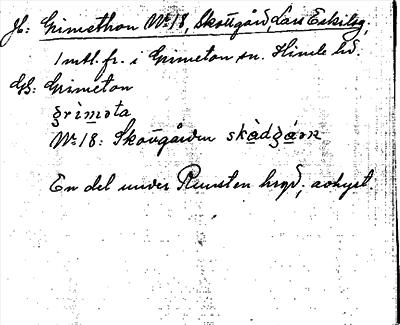 Jb: Grimethon No 18, Skottgård, Lars Eskilsg.
1 mtl. fr. i Grimeton sn. Himle hd.
GB: Grimeton
grìməta
No 18: Skottgården skàdgáɷn
En del under hrgd; avhyst.